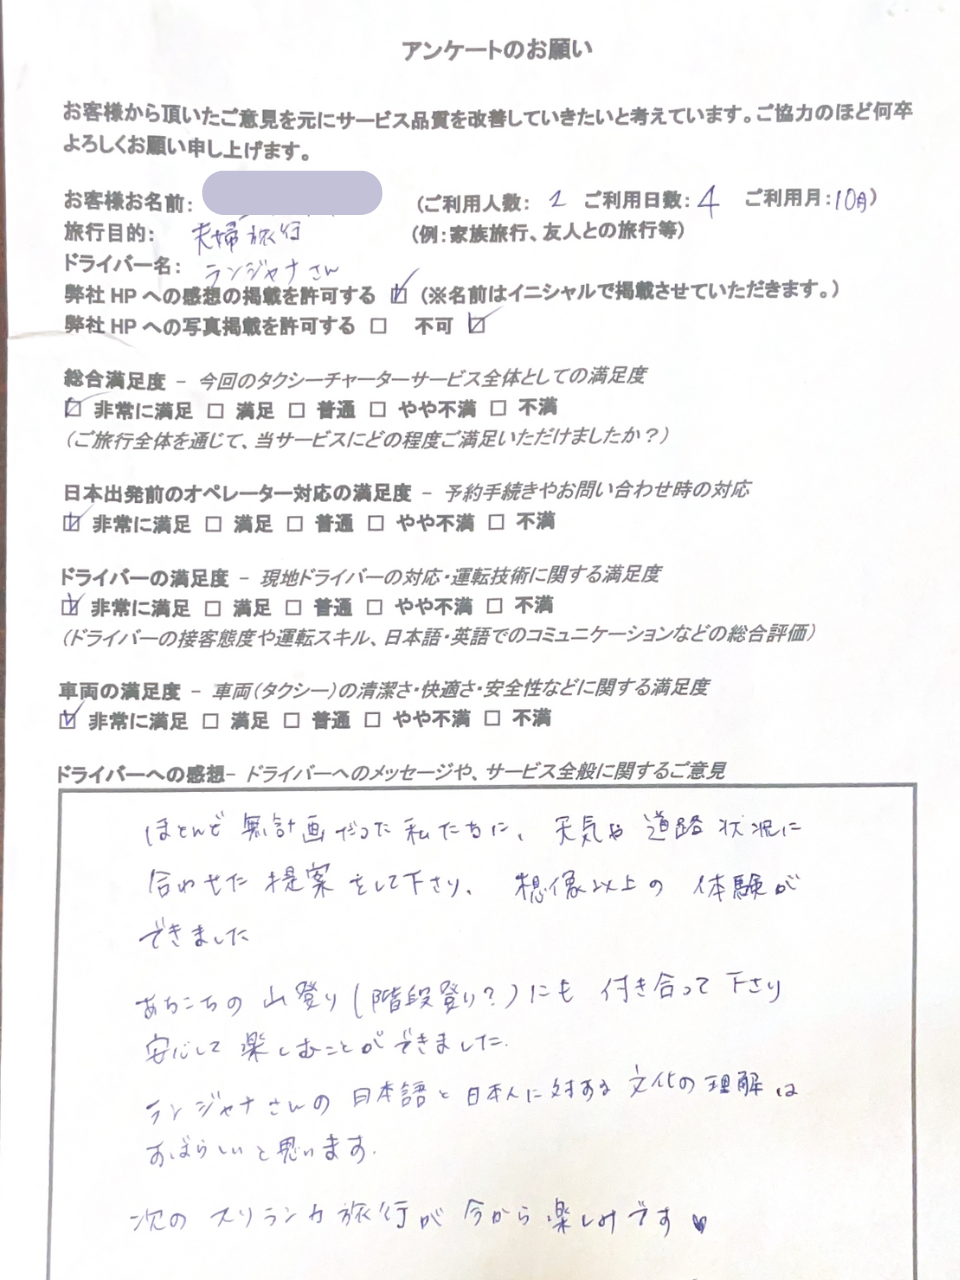 アンケートのお願い
お客様から頂いたご意見を元にサービス品質を改善していきたいと考えています。ご協力のほど何卒
よろしくお願い申し上げます。
お客様お名前: (ご利用人数: ご利用日数: 4 ご利用月:10月)
旅行目的: 夫婦旅行 (例:家族旅行、友人との旅行等)
ドライバー名: ランジャナさん
弊社 HP への感想の掲載を許可する ☑ (※名前はイニシャルで掲載させていただきます。)
弊社 HP への写真掲載を許可する □ 不可 ☑
総合満足度 – 今回のタクシーチャーターサービス全体としての満足度
☑ 非常に満足 □ 満足 □ 普通 □ やや不満 □ 不満
(ご旅行全体を通じて、当サービスにどの程度ご満足いただけましたか?)
日本出発前のオペレーター対応の満足度 – 予約手続きやお問い合わせ時の対応
☑ 非常に満足 □ 満足 □ 普通 □ やや不満 □ 不満
ドライバーの満足度 – 現地ドライバーの対応・運転技術に関する満足度
☑ 非常に満足 □ 満足 □ 普通 □ やや不満 □ 不満
(ドライバーの接客態度や運転スキル、日本語・英語でのコミュニケーションなどの総合評価)
車両の満足度 – 車両(タクシー)の清潔さ・快適さ・安全性などに関する満足度
☑ 非常に満足 □ 満足 □ 普通 □ やや不満 □ 不満
ドライバーへの感想– ドライバーへのメッセージや、サービス全般に関するご意見
ほとんど無計画だった私たちに、天気や道路状況に
合わせた提案をして下さり、想像以上の体験が
できました
あちこちの山登り(階段登り?)にも付き合って下さり
安心して楽しむことができました.
ランジャナさんの日本語と日本人に対する文化の理解は
すばらしいと思います.
次のスリランカ旅行が今から楽しみです♥